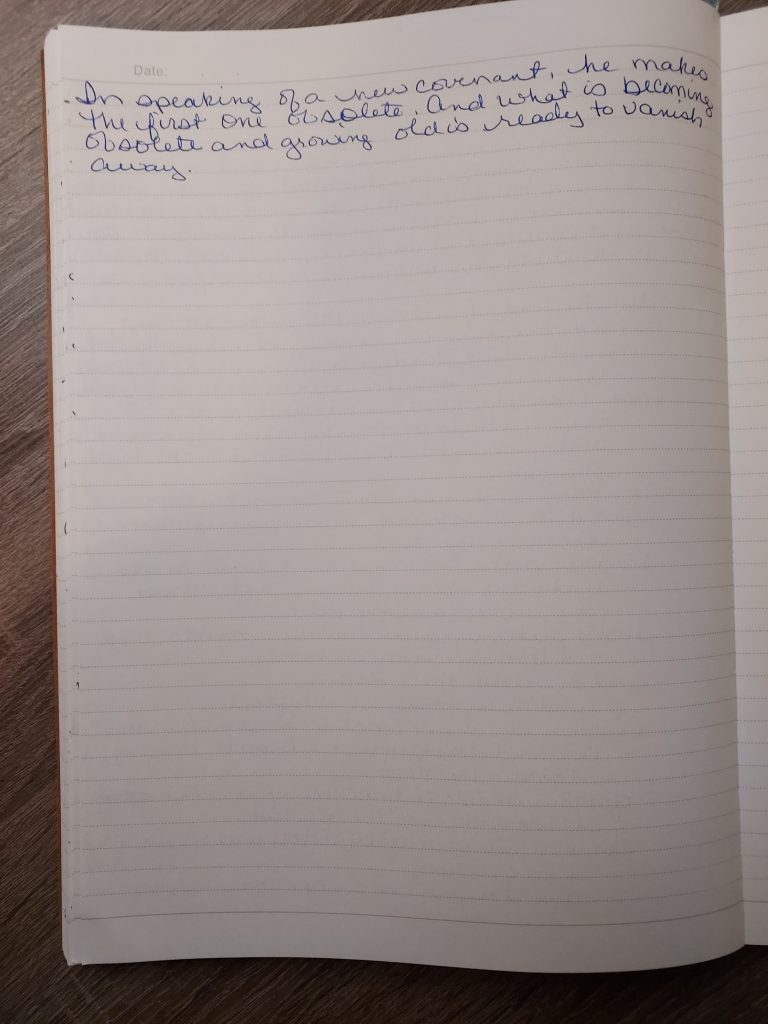 Date:
In speaking of a new covenant, he makes
the first one obsolete. And what is becoming
obsolete and growing old is ready to vanish
away.